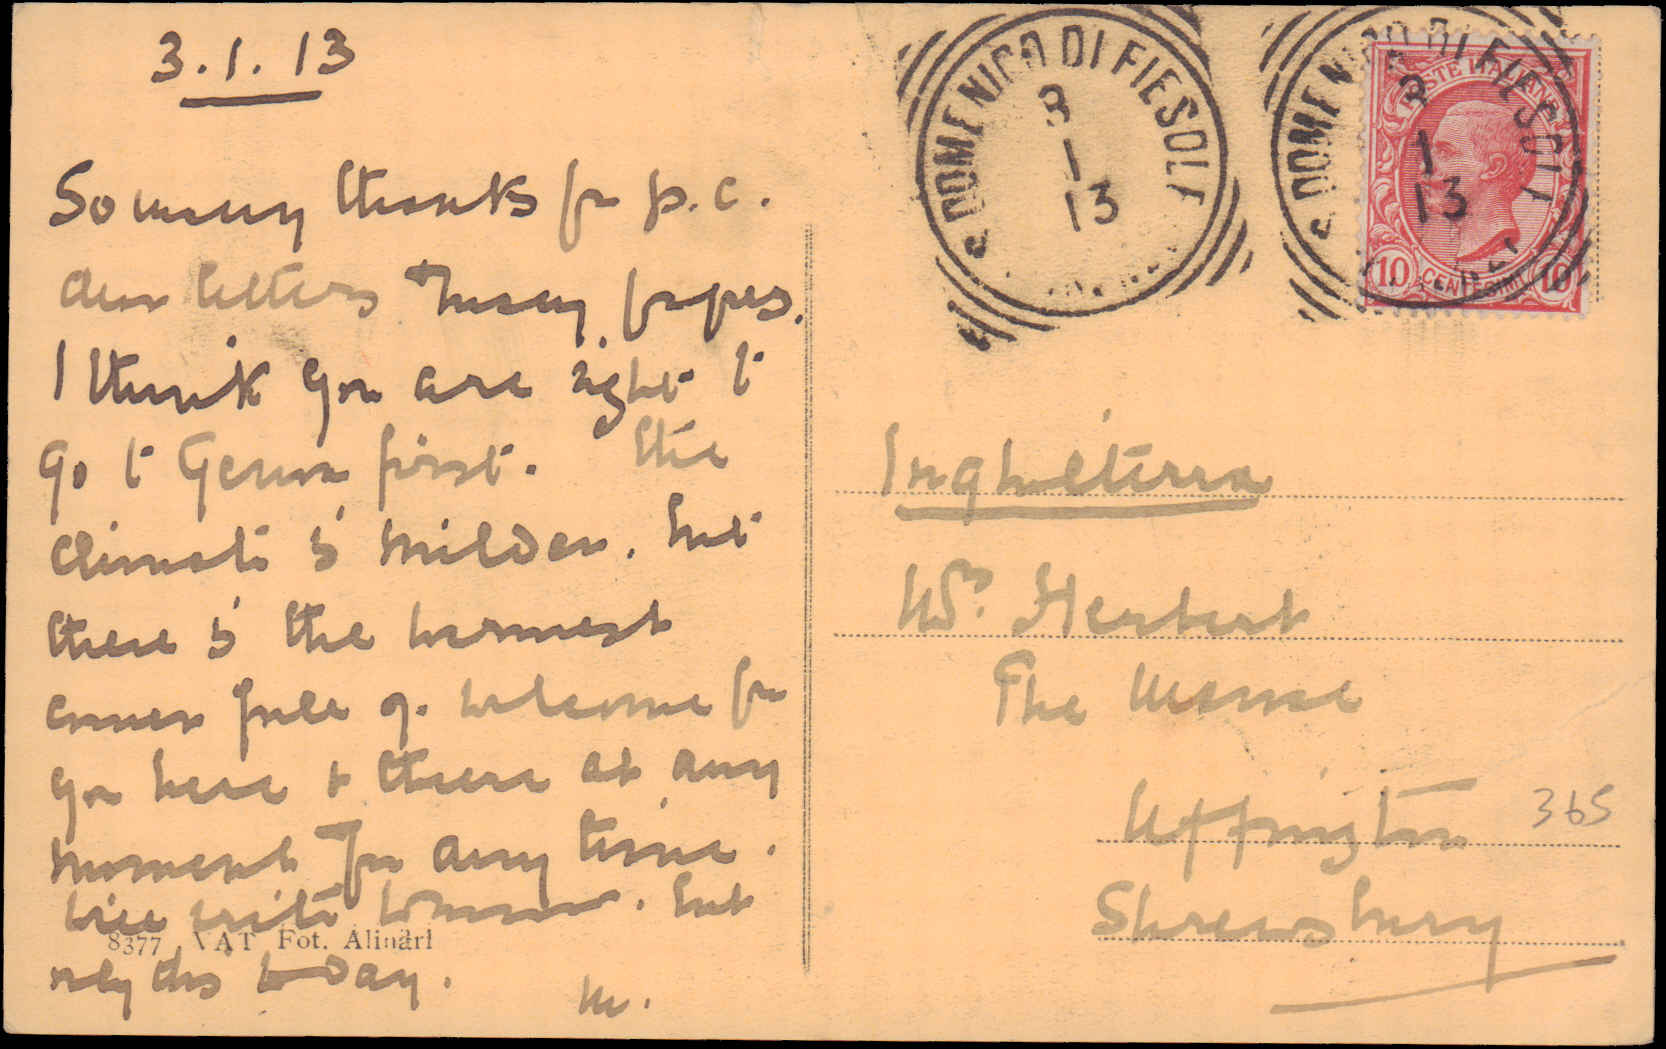 3.1.13
So many thanks for p.c.
dear letters & many papers.
I think you are right to
go to Genoa first. The
climate is milder. but
there is the warmest
corner full of welcome for
you here & there at any
moment & for any time.
Will write tomorrow. but
only this to day.
M.
8377 VAT Fot. Alinari
S. DOMENICO DI FIESOLE
3
1
13
S. DOMENICO DI FIESOLE
3
1
13
POSTE ITALIANE
10 CENTESIMI 10
Inghilterra
Wm. Herbert
The Manse
Uffington
365
Shrewsbury